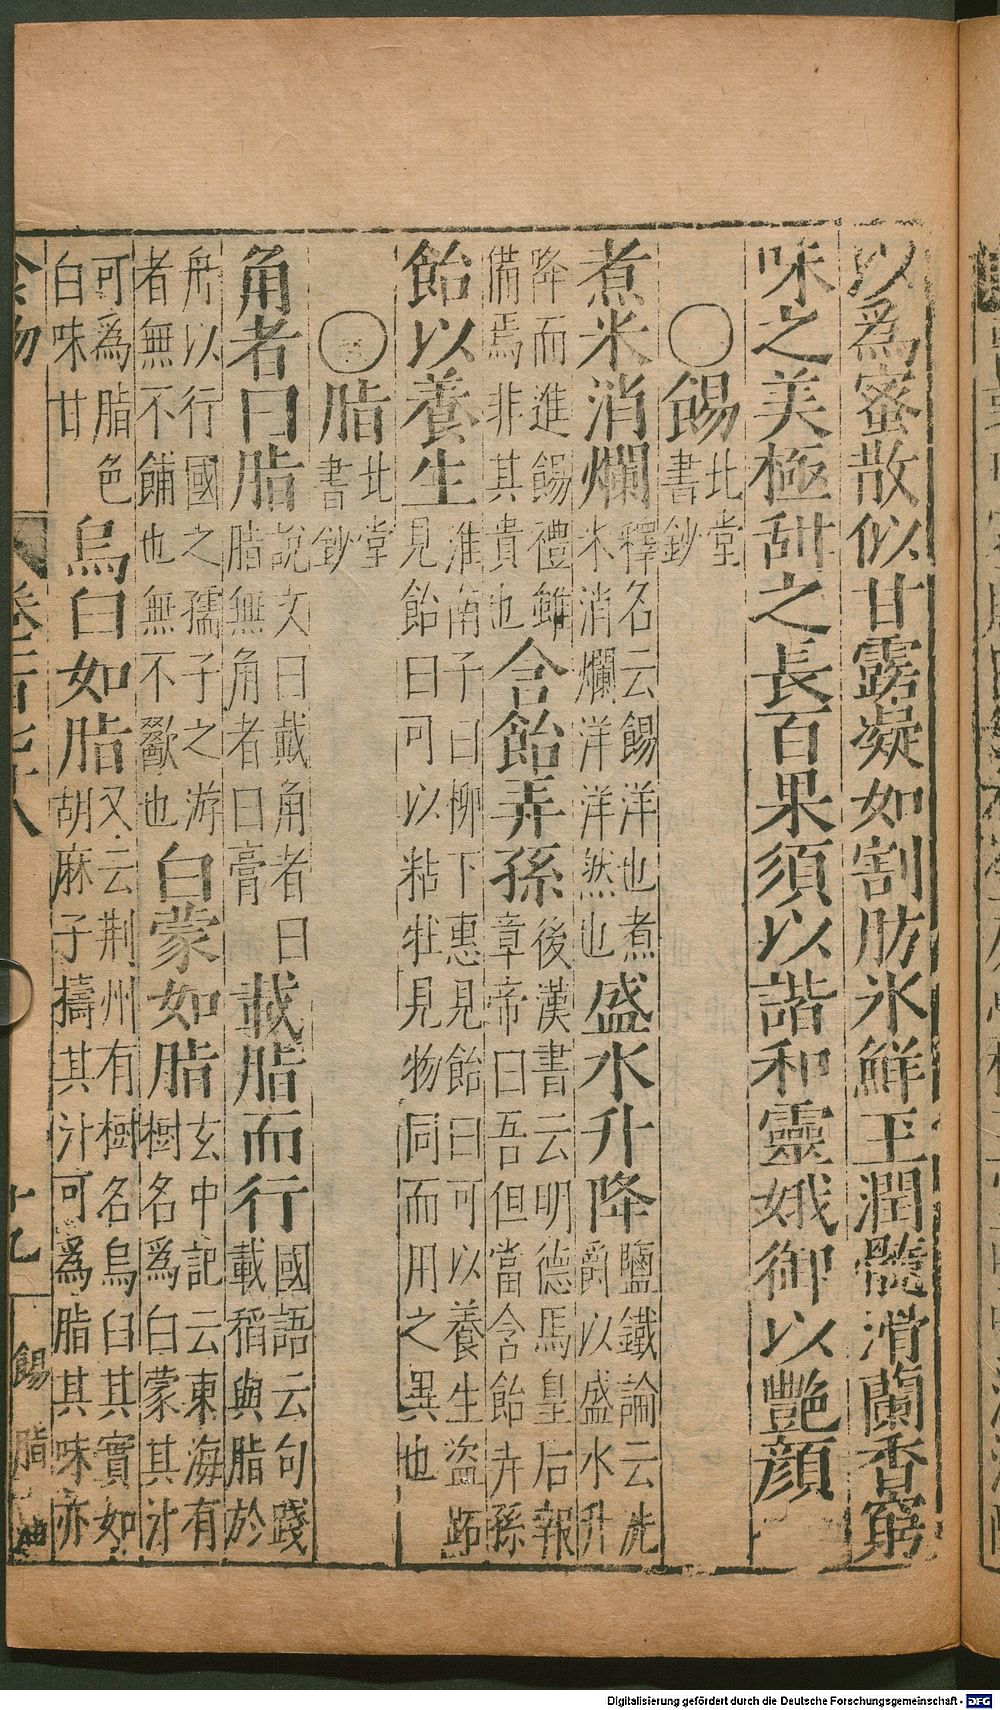 以爲蜜散似甘露凝如割肪氷鮮玉潤髓滑蘭香窮
味之美極甜之長百果須以諧和靈娥御以艷顏
〇餳北堂書鈔
煮米消爛釋名云餳洋也煮米消爛洋洋然也盛水升降鹽鐵論云洗爵以盛水升
降而進餳禮雖備焉非其貴也含飴弄孫後漢書云明德馬皇后報章帝曰吾但當含飴弄孫
飴以養生淮南子曰柳下惠見飴曰可以養生盗跖見飴曰可以粘牡見物同而用之異也
〇脂北堂書鈔
角者曰脂說文曰戴角者曰脂無角者曰膏載脂而行國語云句踐載稻與脂於
舟以行國之孺子之游者無不餔也無不歠也白蒙如脂玄中記云東海有樹名爲白蒙其汁
可爲脂色白味甘烏臼如脂又云荆州有樹名烏臼其實如胡麻子擣其汁可爲脂其味亦
食物
卷二百
十九
餳 脂
Digitalisierung gefördert durch die Deutsche Forschungsgemeinschaft - DFG